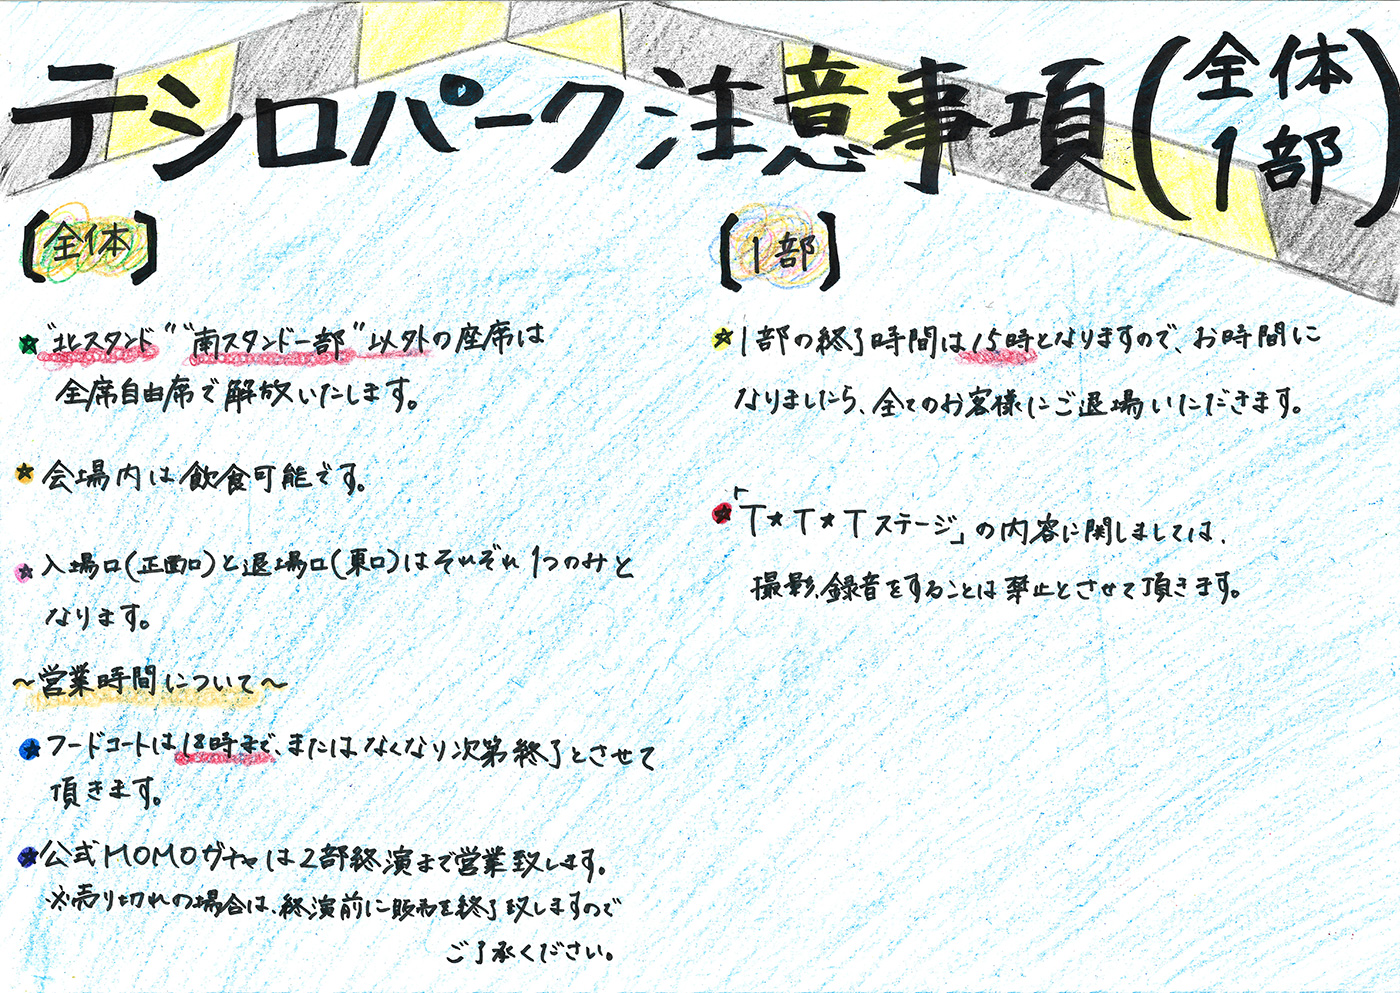 テシロパーク注意事項(全体 1部)
【全体】
★"北スタンド" "南スタンド一部"以外の座席は
全席自由席で解放いたします。
★会場内は飲食可能です。
★入場口(正面口)と退場口(東口)はそれぞれ1つのみと
なります。
~営業時間について~
★フードコートは18時まで、またはなくなり次第終了とさせて
頂きます。
★公式MOMOガチャは2部終演まで営業致します。
※売り切れの場合は、終演前に販売を終了致しますので
ご了承ください。
【1部】
★1部の終了時間は15時となりますので、お時間に
なりましたら、全てのお客様にご退場いただきます。
★「T★T★Tステージ」の内容に関しましては、
撮影、録音をすることは禁止とさせて頂きます。